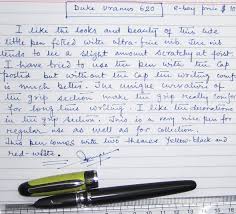 Duke Uranus 620 e-bay price $ 10
I like the looks and beauty of this nice
little pen fitted with ultra-fine nib. The nib
tends to be a slight amount scratchy at first.
I have tried to use the pen with the cap
posted but without the cap the writing
is much better. The unique curvature of
the grip section make the grip really comfor
for long time writing. I like the decorations
in the grip section. This is a very nice pen for
regular use as well as for collection.
This pen comes with two themes Yellow-black and
red-white.